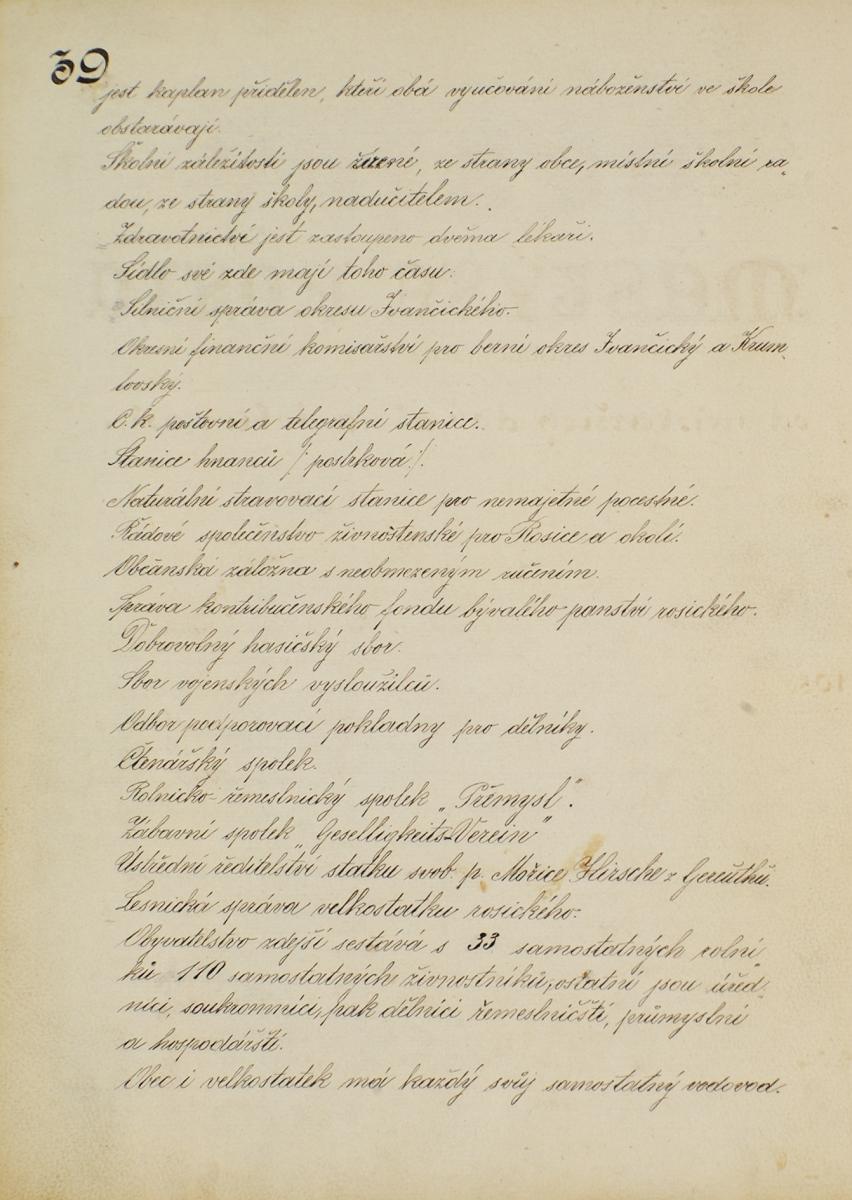 39
jest kaplan přidělen, kteří obá vyučování náboženství ve škole
obstarávají.
Školní záležitosti jsou řízené, ze strany obce, místní školní ra„
dou, ze strany školy, nadučitelem.
Zdravotnictví jest zastoupeno dvěma lékaři.
Sídlo své zde mají toho času:
Silniční správa okresu Ivančického.
Okresní finanční komisařství pro berní okres Ivančický a Krum„
lovský.
C. k. poštovní a telegrafní stanice.
Stanice hnanců /: postrková :/.
Naturální stravovací stanice pro nemajetné pocestné.
Řádové společenstvo živnostenské pro Rosice a okolí.
Občanská záložna s neobmezeným ručením.
Správa kontribučenského fondu bývalého panství rosického.
Dobrovolný hasičský sbor.
Sbor vojenských vysloužilců.
Odbor podporovací pokladny pro dělníky.
Čtenářský spolek.
Rolnicko-řemeslnický spolek „Přemysl".
Zábavní spolek „Geselligkeits-Verein"
Ústřední ředitelství statku svob. p. Mořice Hirsche z Gereuthů.
Lesnická správa velkostatku rosického.
Obyvatelstvo zdejší sestává s 33 samostatných rolní
ků 110 samostatných živnostníků, ostatní jsou úřed„
níci, soukromníci, pak dělníci řemeslničtí, průmyslní
a hospodářští.
Obec i velkostatek má každý svůj samostatný vodovod.